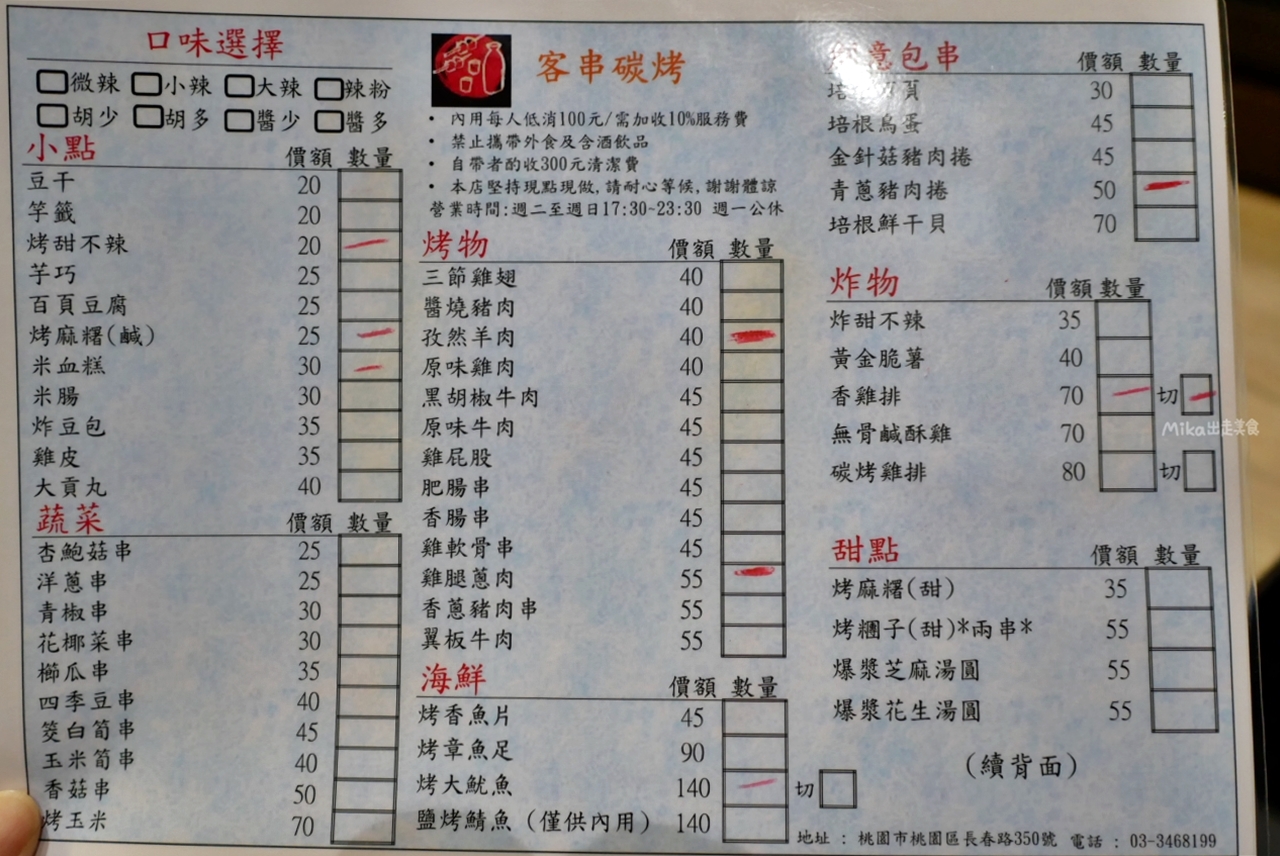 口味選擇
微辣 小辣 大辣 辣粉
胡少 胡多 醬少 醬多
小點 價額 數量
豆干 20
竽籤 20
烤甜不辣 20
芋巧 25
百頁豆腐 25
烤麻糬(鹹) 25
米血糕 30
米腸 30
炸豆包 35
雞皮 35
大貢丸 40
蔬菜 價額 數量
杏鮑菇串 25
洋蔥串 25
青椒串 30
花椰菜串 30
櫛瓜串 35
四季豆串 40
筊白筍串 45
玉米筍串 40
香菇串 50
烤玉米 70
客串碳烤
• 內用每人低消100元/需加收10%服務費
• 禁止攜帶外食及含酒飲品
• 自帶者酌收300元清潔費
• 本店堅持現點現做,請耐心等候,謝謝體諒
營業時間:週二至週日17:30~23:30 週一公休
烤物 價額 數量
三節雞翅 40
醬燒豬肉 40
孜然羊肉 40
原味雞肉 40
黑胡椒牛肉 45
原味牛肉 45
雞屁股 45
肥腸串 45
香腸串 45
雞軟骨串 45
雞腿蔥肉 55
香蔥豬肉串 55
翼板牛肉 55
海鮮 價額 數量
烤香魚片 45
烤章魚足 90
烤大魷魚 140 切
鹽烤鯖魚（僅供內用） 140
意包串 價額 數量
培 頁 30
培根鳥蛋 45
金針菇豬肉捲 45
青蔥豬肉捲 50
培根鮮干貝 70
炸物 價額 數量
炸甜不辣 35
黃金脆薯 40
香雞排 70 切
無骨鹹酥雞 70
碳烤雞排 80 切
甜點 價額 數量
烤麻糬(甜) 35
烤糰子(甜)*兩串* 55
爆漿芝麻湯圓 55
爆漿花生湯圓 55
(續背面)
地址 : 桃園市桃園區長春路350號 電話 : 03-3468199
Mika出走美食